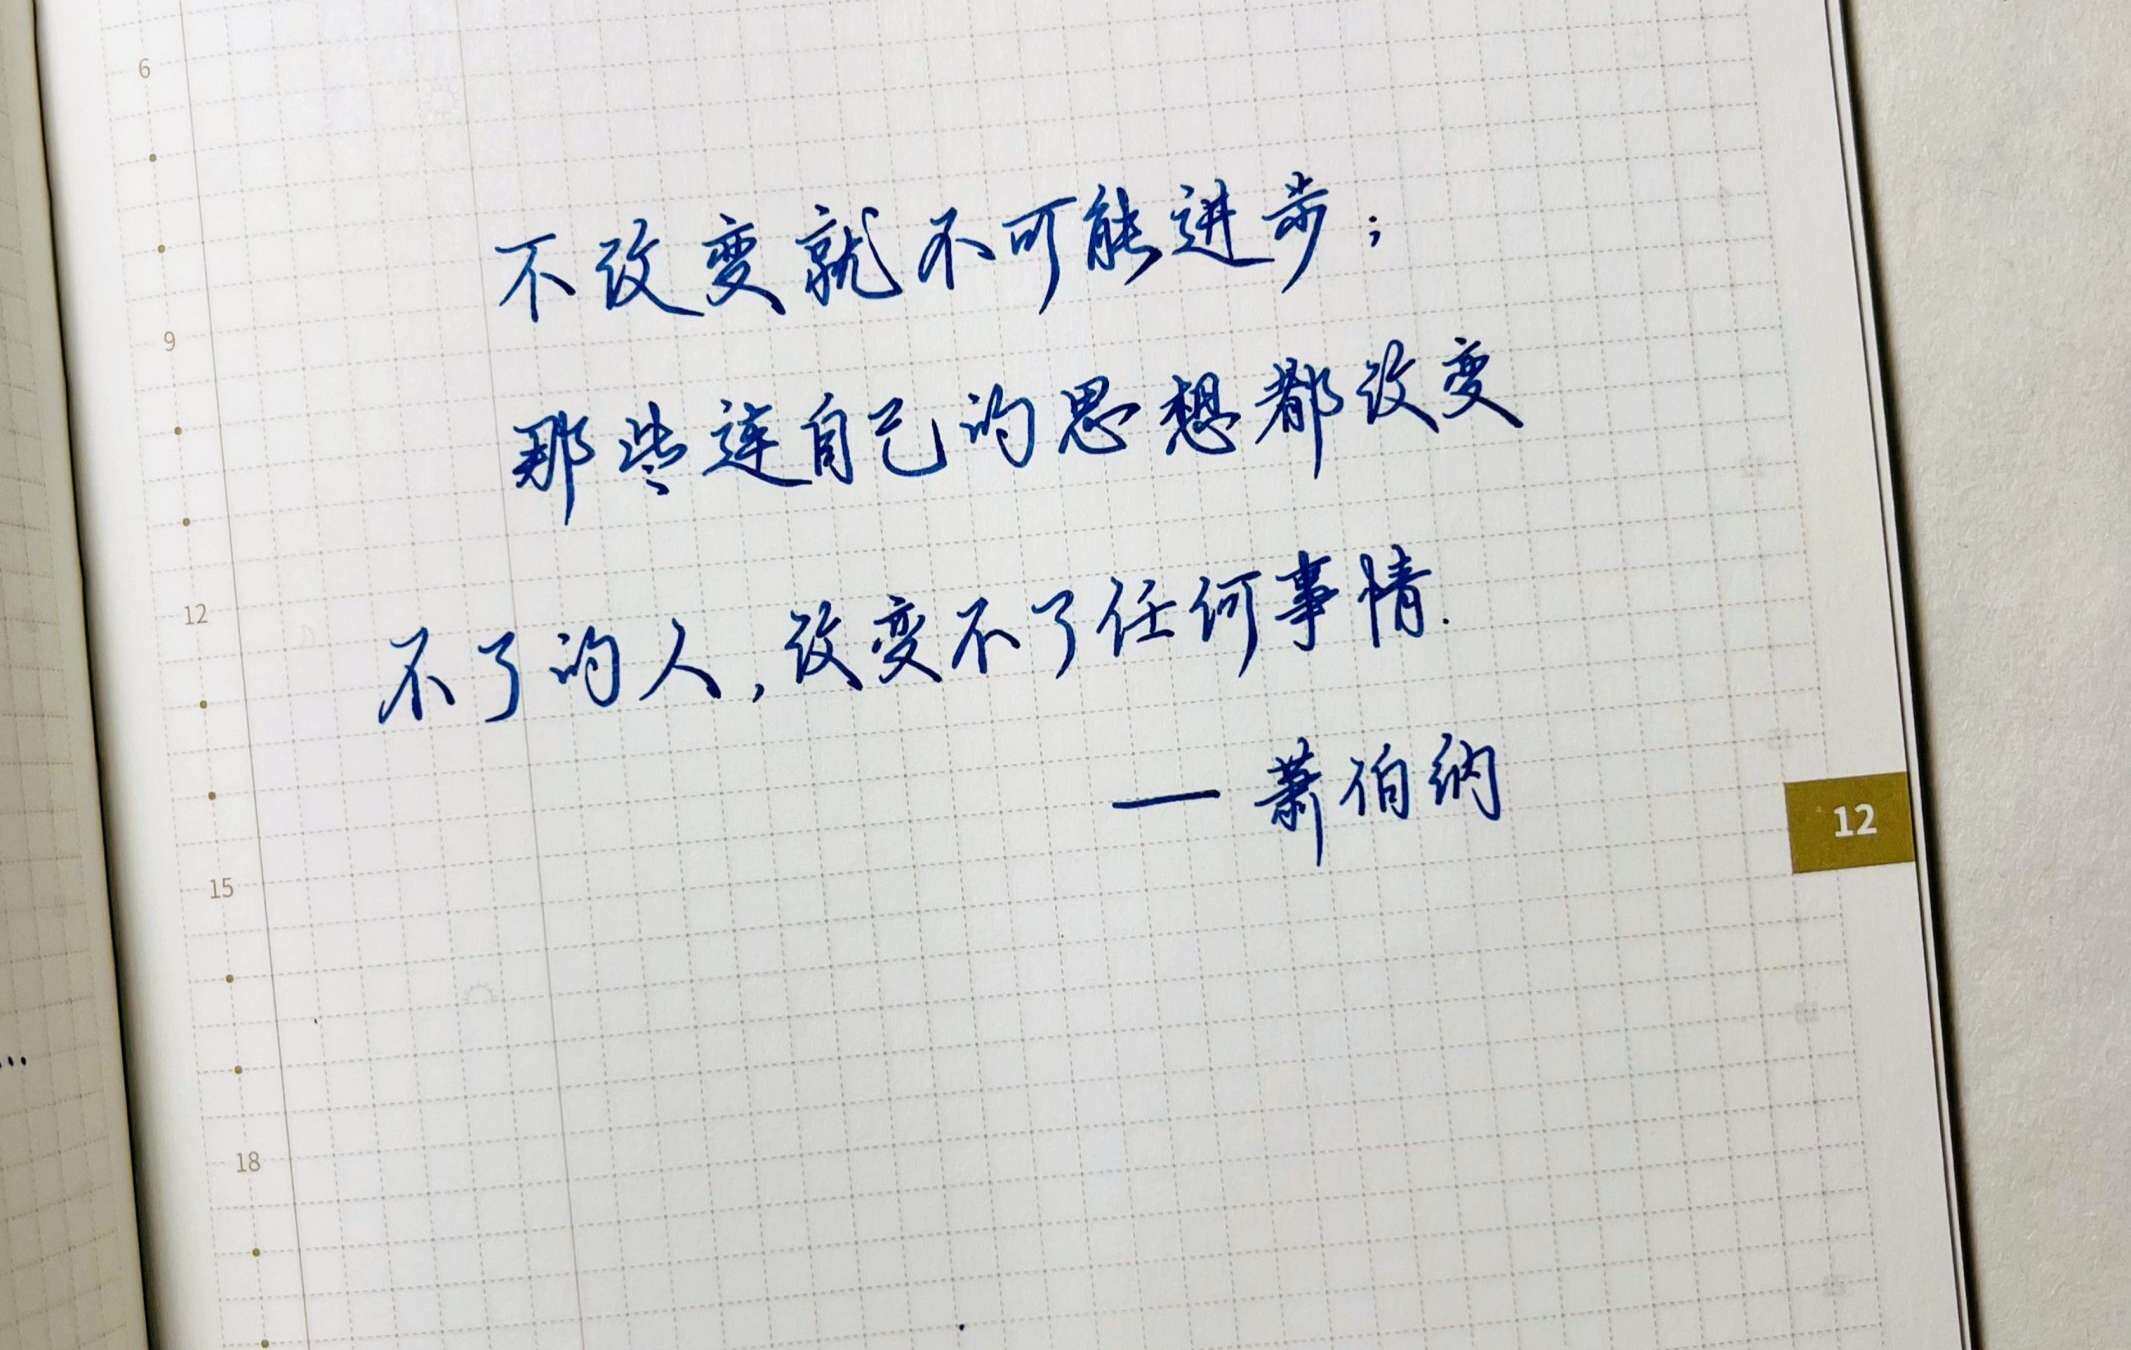 6
不改变就不可能进步；
9
那些连自己的思想都改变
12
不了的人，改变不了任何事情.
— 萧伯纳
12
15
18
...